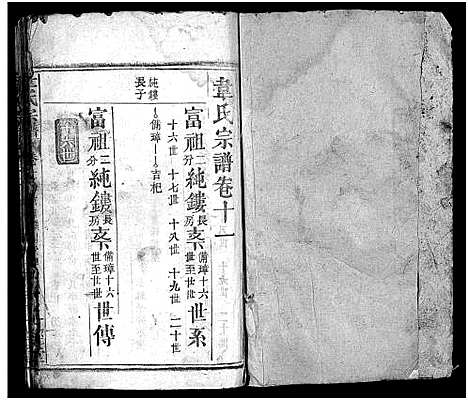 韋氏宗譜卷十一
富祖二分純鏤長房支下備璋十六世至廿世世系
十六世 十七世 十八世 十九世 二十世
純鏤長子
備璋 吉杞
富祖二分純鏤長房支下備璋十六世至廿世世傳